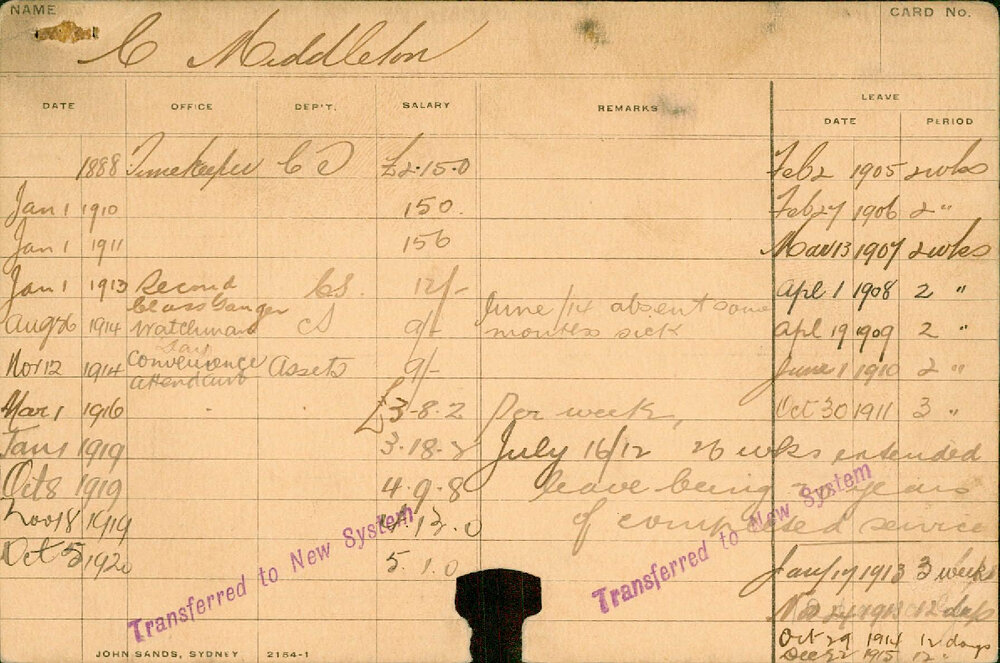 NAME
CARD No.
C Middleton
DATE OFFICE DEP'T. SALARY REMARKS LEAVE
DATE PERIOD
1888 Timekeeper C D £2.15.0 Feb 2 1905 2 wks
Jan 1 1910 150. Feb 27 1906 2 "
Jan 1 1911 156 Mar 13 1907 2 wks
Jan 1 1913 Second Class Ganger CS. 12/- Apl 1 1908 2 "
Aug 26 1914 Watchman CS 9/- June/14 absent some months sick Apl 19 1909 2 "
Nov 12 1914 San Convenience attendant Assets 9/- June 1 1910 2 "
Mar 1 1916 £3-8.2 Per week, Oct 30 1911 3 "
Jan 1 1919 3.18.2 July 16/12 26 wks extended
Oct 8 1919 4.9.8 leave being years
Nov 18 1919 4.13.0 of completed service
Oct 5 1920 5.1.0 Jany 17 1913 3 weeks
1913 12 days
Oct 29 1914 12 days
Dec 22 1915 12 "
Transferred to New System
Transferred to New System
JOHN SANDS, SYDNEY 2184-1